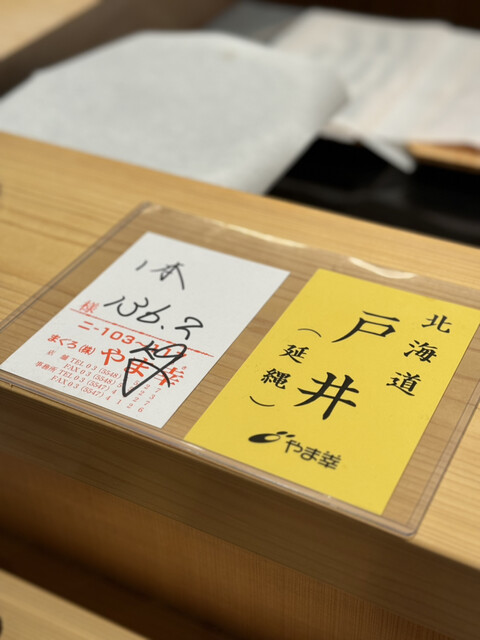 一本
136.2
様
二-103
まぐろ(株)やま幸
店舗 TEL 03 (5548)
FAX 03 (5548)
事務所 TEL 03 (5547)
FAX 03 (5547)
北海道
戸井
(延縄)
やま幸